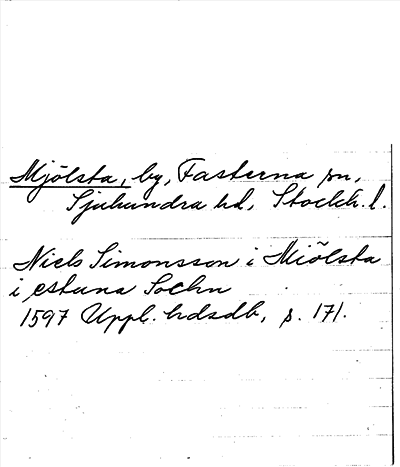 Mjölsta, by, Fasterna sn,
Sjuhundra hd, Stockh. l.
Niels Simonsson i Miölsta
i estuna Sochn
1597 Uppl. hdsdb, s. 171.